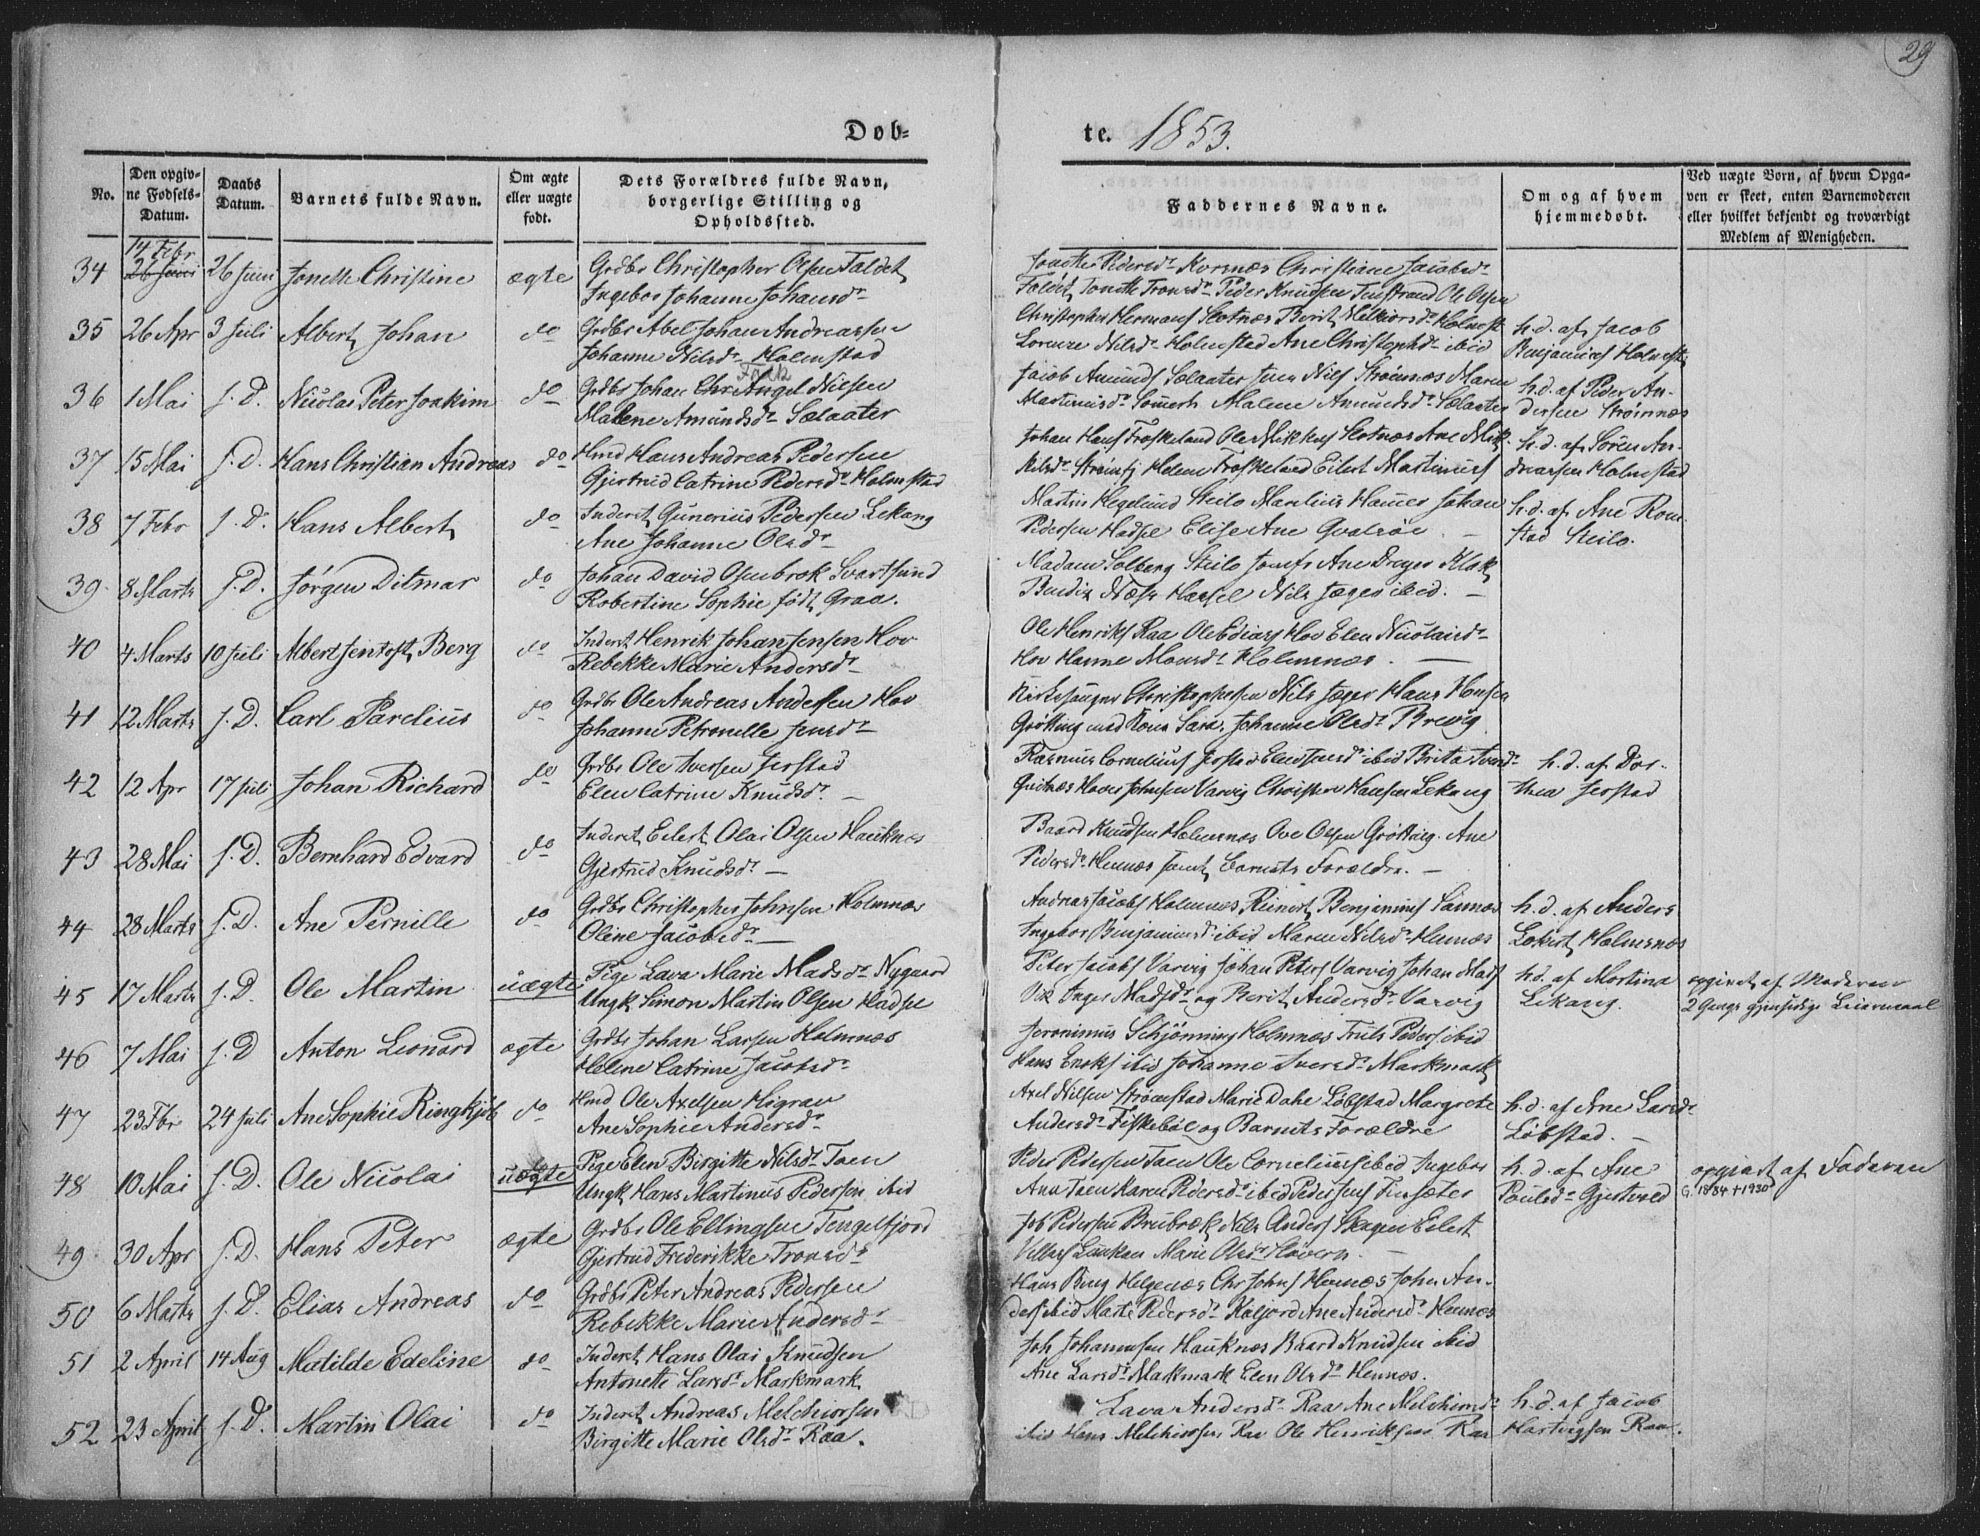 29
Dob-
te. 1853.
No.
Den opgiv-
ne Fodsels-
Datum.
Daabs
Datum.
Barnets fulde Navn.
Om ægte
eller uægte
født.
Dets Forældres fulde Navn,
borgerlige Stilling og
Opholdssted.
Faddernes Navne.
Om og af hvem
hjemmedøbt.
Ved uægte Børn, af hvem Opga-
ven er skeet, enten Barnemoderen
eller hvilket bekjendt og troværdigt
Medlem af Menigheden.
14 Febr
34 26 Juni 26 Juni Jonette Christine ægte Grdbr Christopher Olsen Faldet
Ingebor Johanne Johansdr
Pedersdr Kornæs Christiane Jacobsdr
Tronsdr Peder Knudsen Ole Olsen
35 26 Apr 3 Juli Albert Johan do Grdbr Abel Johan Andreassen
Johanne Nilsdr Holmstad
Christopher Hermans Slotnæs Berit Melkiorsdr Holmst
Lorenze Nilsdr Holmstad Ane Christophdr ibid
h. d. af Jacob
Benjamins Holmst
36 1 Mai s. D. Nicolai Peter Joakim do Grdbr Johan Chr Angel Nilsen
Malene Amundsdr Sælaater
Jacob Amunds Sælaater Jens Nils Strømnæs Maren
Martinusdr Malene Amundsdr Sælaater
h. d. af Peder An-
dersen Strømnæs
37 15 Mai s. D. Hans Christian Andreas do Hmd Hans Andreas Pedersen
Gjertrud Catrine Pedersdr Holmstad
Johan Hans Froskeland Ole Mikkels Slotnæs Ane Mik-
kelsdr Helene Froskeland Eilert Martinus
h. d. af Søren An-
dreassen Holmstad
38 7 Febr s. D. Hans Albert do Inderst Gunerius Pedersen Lekang
Ane Johanne Olsdr
Martin Hegelund Steilo Marelius Johan
Pedersen Hadsel Elise Ane
h. d. af Ane Rom-
stad Steilo.
39 8 Marts s. D. Jørgen Ditmar do Johan David Osenbrok Svartsund
Robertine Sophie født Graa.
Madam Solberg Steilo Josefs Ane Dreyer Klak
Bendix Næss Hassel Nils Jæger ibid.
40 4 Marts 10 Juli Albert Jentoft Berg do Inderst Henrik Johan Jensen Hov
Rebekke Marie Andersdr
Ole Henriks Raa Ole Ediass Hov Elen Nicolaisdr
Hov Hanne Monsdr Holmnæs.
41 12 Marts s. D. Carl Parelius do Grdbr Ole Andreas Andersen Hov
Johanne Petronelle Jensdr
Kirkesanger Christophersen Nils Jæger Hans Hansen
Grøtting med Kone Sara. Johanne Olsdr Brevig
42 12 Apr 17 Juli Johan Richard do Grdbr Ole Iversen Jerstad
Elen Catrine Knudsdr.
Rasmus Cornelius Jerstad Elen Jensdr ibid Brita Iversdr
Johnsen Varvig Christen Hansen Lekang
h. d. af Dor-
thea Jerstad
43 28 Mai s. D. Bernhard Edvard do Inderst Eilert Olai Olsen Hauknæs
Gjertrud Knudsdr.
Baard Knudsen Holmnæs Ove Olsen Grøtting. Ane
Pedersdr Hennæs samt Barnets Forældre.
44 28 Marts s. D. Ane Pernille do Grdbr Christopher Johnsen Holmnæs
Oline Jacobsdr
Andreas Jacobs Holmnæs Reinert Benjamins Sannæs
Ingebor Benjaminsdr ibid Maren Nilsdr Hennæs
h. d. af Anders
Holmnæs
45 17 Marts s. D. Ole Martin uægte Pige Lava Marie Madsdr Nygaard
Ungk Simon Martin Olsen Hadsel
Peter Jacobs Varvig Johan Peters Varvig Johan Mads
Vik Inger Madsdr og Berit Andersdr Varvig
h. d. af Martina
Lekang.
opgivet af Moderen
2 Gangs gjensidige Leiermaal
46 7 Mai s. D Anton Leonard ægte Grdbr Johan Larsen Holmnæs
Helene Catrine Jacobsdr
Jeronimus Schjønning Holmnæs Truls Peders ibid
Hans Enoks ibid Johanne Iversdr Markmark
47 23 Fbr 24 Juli Ane Sophie Ringkjøb do Hmd Ole Axelsen Higrav
Ane Sophie Andersdr
Axel Nilsen Strømstad Marie Dahl Løbstad Margrete
Andersdr Fiskebøl og Barnets Forældre
h. d. af Ane Larsdr
Løbstad.
48 10 Mai s. D. Ole Nicolai uægte Pige Elen Birgitte Nilsdr Taen
Ungk Hans Martinus Pedersen ibid
Peder Pedersen Taen Ole Cornelius ibid Ingebor
Ana Taen Karen Pedersdr ibid Peder Jens Finsæter
h. d. af Ane
Poulsdr Gjestvad
opgivet af Faderen
G. 1884 + 1930
49 30 Apr s. D. Hans Peter ægte Grdbr Ole Ellingsen Tengelfjord
Gjertrud Frederikke Tronsdr
Job Pedersen Brubræk Nils Anders Skagen Eilert
Marie Olsdr
50 6 Marts s. D. Elias Andreas do Grdbr Peter Andreas Pedersen
Rebekke Marie Andersdr
Hans Helgenæs Chr Johns Hennæs John An-
ders ibid Marte Pedersdr Kaljord Ane Andersdr Hennæs
51 2 April 14 Aug Matilde Edeline do Inderst Hans Olai Knudsen
Antonette Larsdr Markmark
Joh Johannesen Hauknæs Baard Knudsen ibid
Ane Larsdr Markmark Elen Olsdr Hennæs.
52 23 April s. D. Martin Olai do Inderst Andreas Melchiorsen
Birgitte Marie Olsdr Raa.
Lava Andersdr Raa Ane Melchiorsdr
ibid Hans Melchiorsen Raa Ole Henriksen Raa
h. d. af Jacob
Hartvigsen Raa.